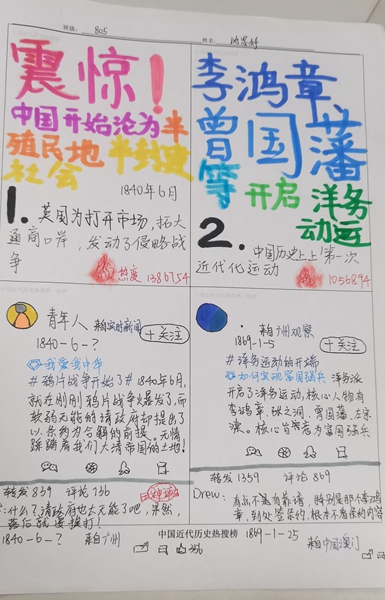 班级: 805
姓名:
震惊!
中国开始沦为半
殖民地半封建
社会
1840年6月
1.英国为打开市场,拓大
通商口岸,发动了侵略战
争
热度 1386754
李鸿章
曾国藩
等开启洋务
动运
2.中国历史上上第一次
近代化运动
1056894
青年人 来自实时新闻
1840-6-? +关注
#鸦片战争开始了# 1840年6月,
就在刚刚鸦片战争爆发了,而
软弱无能的清政府却提出了
以条约为合解的前提。无情
蹂躏着我们大清帝国的土地!
转发 839 评论 136
:什么?清政府也太无能了吧,果然,
落后就要挨打!
1840-6-? 来自广州
来自广州观察
1869-1-5 +关注
#洋务运动的开端
#如何实现富国强兵 洋务派
开启了洋务运动,核心人物有
李鸿章,张之洞、曾国藩、左宗
棠。核心旨意为富国强兵
转发 1359 评论 869
Drew:
有点不太靠谱,特别是那个李鸿
章,到处签条约,根本不看条约内容
中国近代历史热搜榜 1869-1-25
来自中国澳门